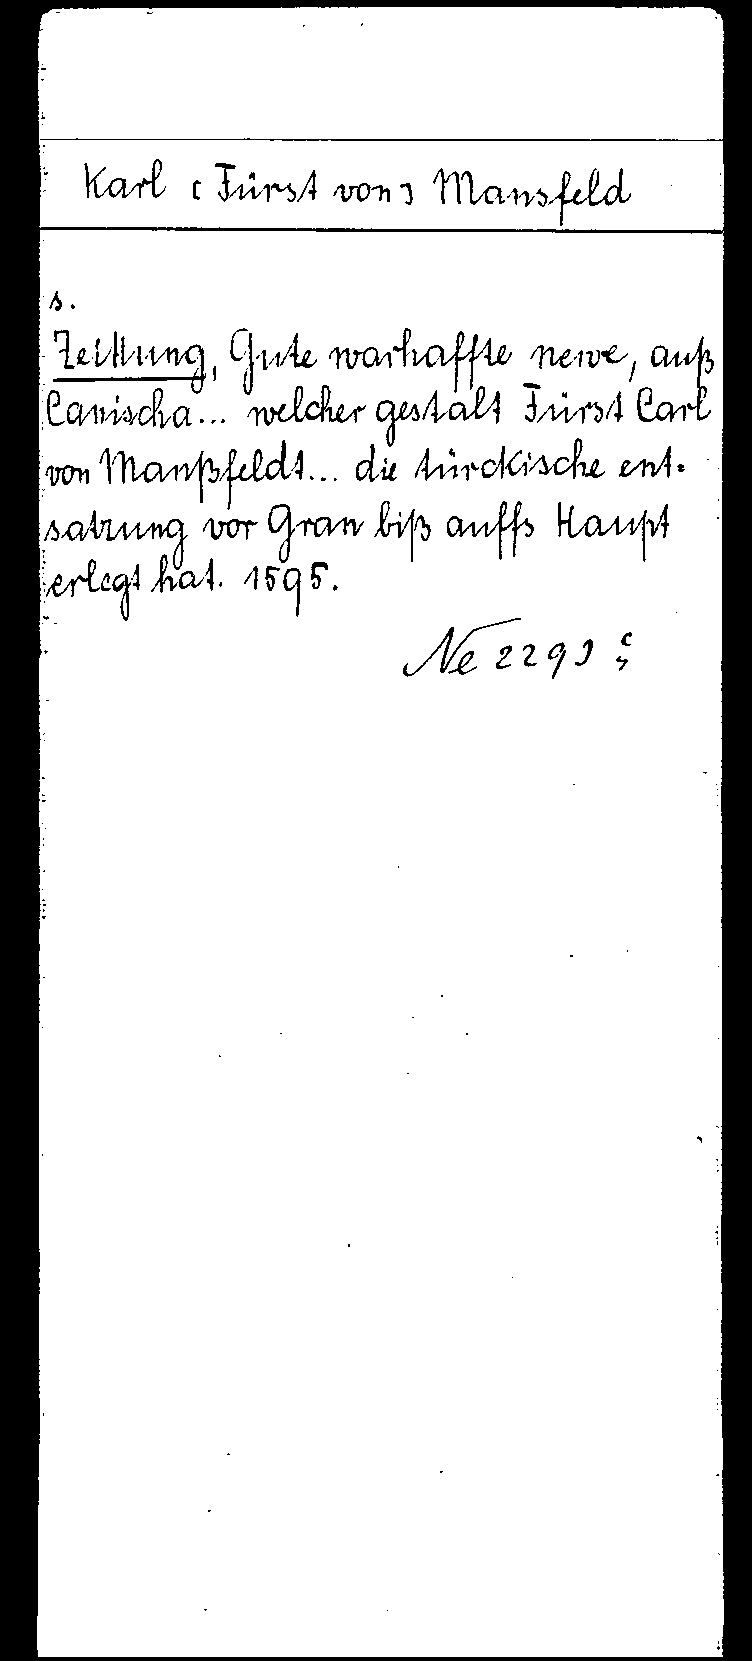 Karl [Fürst von] Mansfeld
s.
Zeittung, Gute warhaffte newe, auß
Canischa... welcher gestalt Fürst Carl
von Manßfeldt... die türckische ent-
satzung vor Gran biß auffs Haupt
erlegt hat. 1595.
Ne 2293